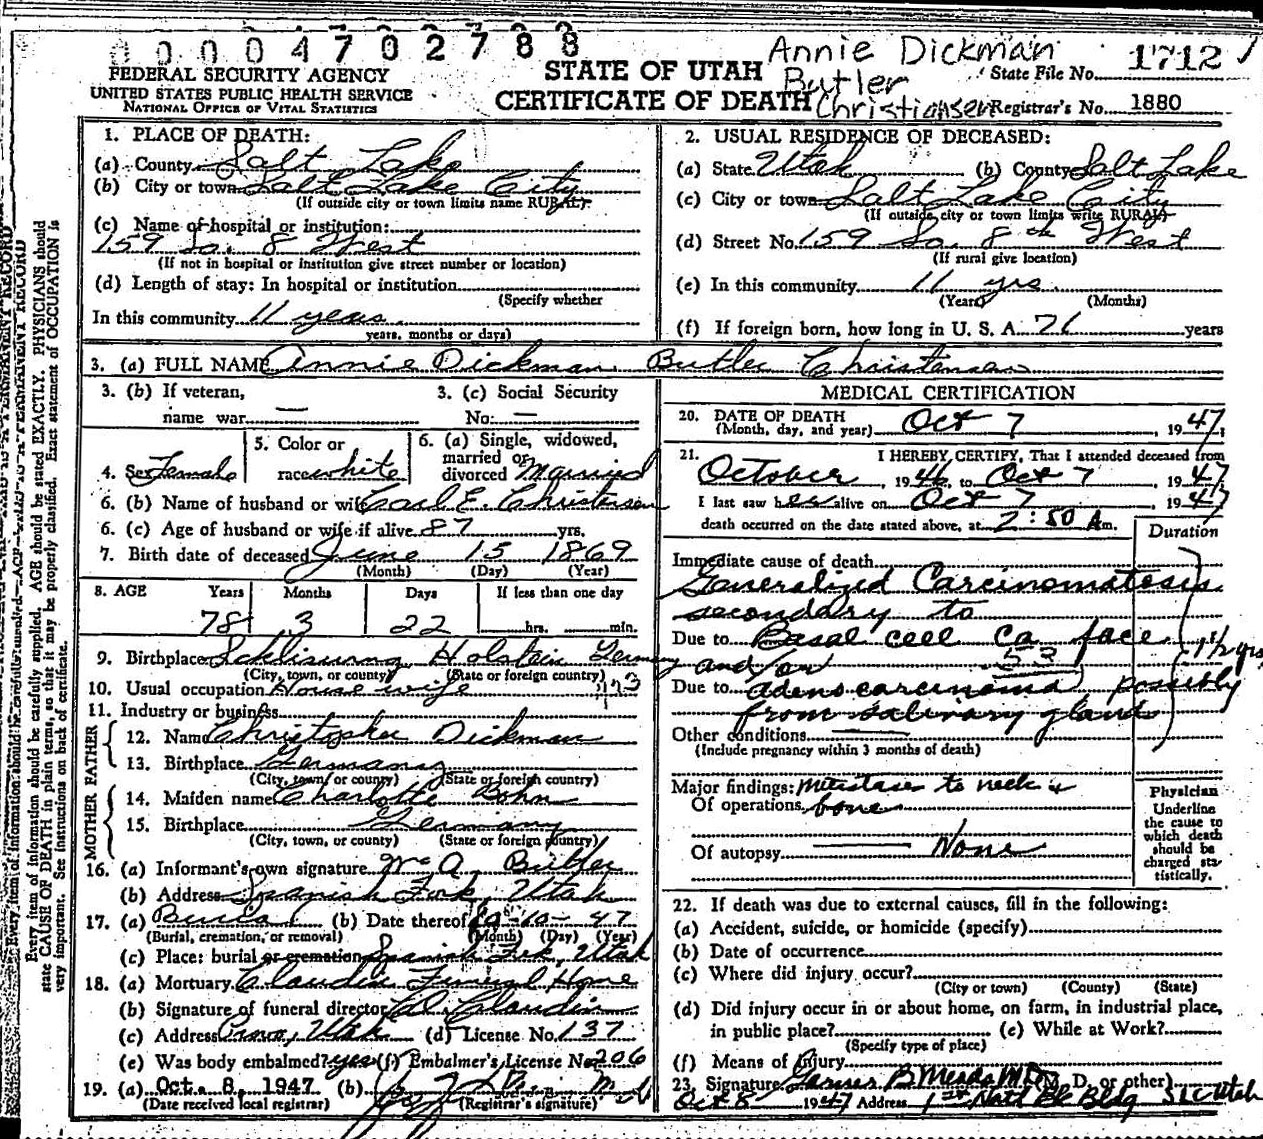 0 0 0 0 4 7 0 2 7 8 8
Annie Dickman
Butler
Christiansen
FEDERAL SECURITY AGENCY
UNITED STATES PUBLIC HEALTH SERVICE
NATIONAL OFFICE OF VITAL STATISTICS
STATE OF UTAH
CERTIFICATE OF DEATH
State File No. 1712
Registrar's No. 1880
Every item of information should be carefully supplied. AGE should be stated EXACTLY. PHYSICIANS should
state CAUSE OF DEATH in plain terms, so that it may be properly classified. Exact statement of OCCUPATION is
very important. See instructions on back of certificate.
1. PLACE OF DEATH:
(a) County Salt Lake
(b) City or town Salt Lake City
(If outside city or town limits name RURAL)
(c) Name of hospital or institution:
159 So. 8 West
(If not in hospital or institution give street number or location)
(d) Length of stay: In hospital or institution
(Specify whether
In this community 11 years
years, months or days)
2. USUAL RESIDENCE OF DECEASED:
(a) State Utah (b) County Salt Lake
(c) City or town Salt Lake City
(If outside city or town limits write RURAL)
(d) Street No. 159 So. 8th West
(If rural give location)
(e) In this community 11 yrs.
(Years) (Months)
(f) If foreign born, how long in U. S. A. 71 years
3. (a) FULL NAME Annie Dickman Butler Christensen
3. (b) If veteran,
name war —
3. (c) Social Security
No: —
4. Sex Female
5. Color or
race white
6. (a) Single, widowed,
married or
divorced Married
6. (b) Name of husband or wife Carl E. Christensen
6. (c) Age of husband or wife if alive 87 yrs.
7. Birth date of deceased June 15 1869
(Month) (Day) (Year)
8. AGE Years Months Days If less than one day
78 3 22 hrs. min.
9. Birthplace Holstein Germany
(City, town, or county) (State or foreign country)
10. Usual occupation House wife
11. Industry or business
FATHER
12. Name Christopher Dickman
13. Birthplace Germany
(City, town, or county) (State or foreign country)
MOTHER
14. Maiden name Charlotte Bohn
15. Birthplace Germany
(City, town, or county) (State or foreign country)
16. (a) Informant's own signature A. Butler
(b) Address Spanish Fork, Utah
17. (a) Burial (b) Date thereof 10-10-47
(Burial, cremation, or removal) (Month) (Day) (Year)
(c) Place: burial or cremation Spanish Fork, Utah
18. (a) Mortuary Claudin Funeral Home
(b) Signature of funeral director Claudin
(c) Address Provo, Utah (d) License No. 137
(e) Was body embalmed? yes (f) Embalmer's License No. 206
19. (a) Oct. 8, 1947 (b)
(Date received local registrar) (Registrar's signature)
MEDICAL CERTIFICATION
20. DATE OF DEATH
(Month, day, and year) Oct 7, 1947
21. I HEREBY CERTIFY, That I attended deceased from
October, 1946, to Oct 7, 1947
I last saw her alive on Oct 7, 1947
death occurred on the date stated above, at 2:50 A m.
Duration
Immediate cause of death
Generalized Carcinomatosis
secondary to
Due to Basal cell Ca face
and/or 53
Due to adenocarcinoma, possibly
from salivary glands
1½ yrs
Other conditions —
(Include pregnancy within 3 months of death)
Major findings: metastases to neck &
Of operations bone
Of autopsy None
Physician
Underline
the cause to
which death
should be
charged sta-
tistically.
22. If death was due to external causes, fill in the following:
(a) Accident, suicide, or homicide (specify)
(b) Date of occurrence
(c) Where did injury occur?
(City or town) (County) (State)
(d) Did injury occur in or about home, on farm, in industrial place,
in public place? (e) While at Work?
(Specify type of place)
(f) Means of Injury
23. Signature M.D. (M. D. or other)
Oct 8 1947 Address 1st Natl Bk Bldg SLC Utah